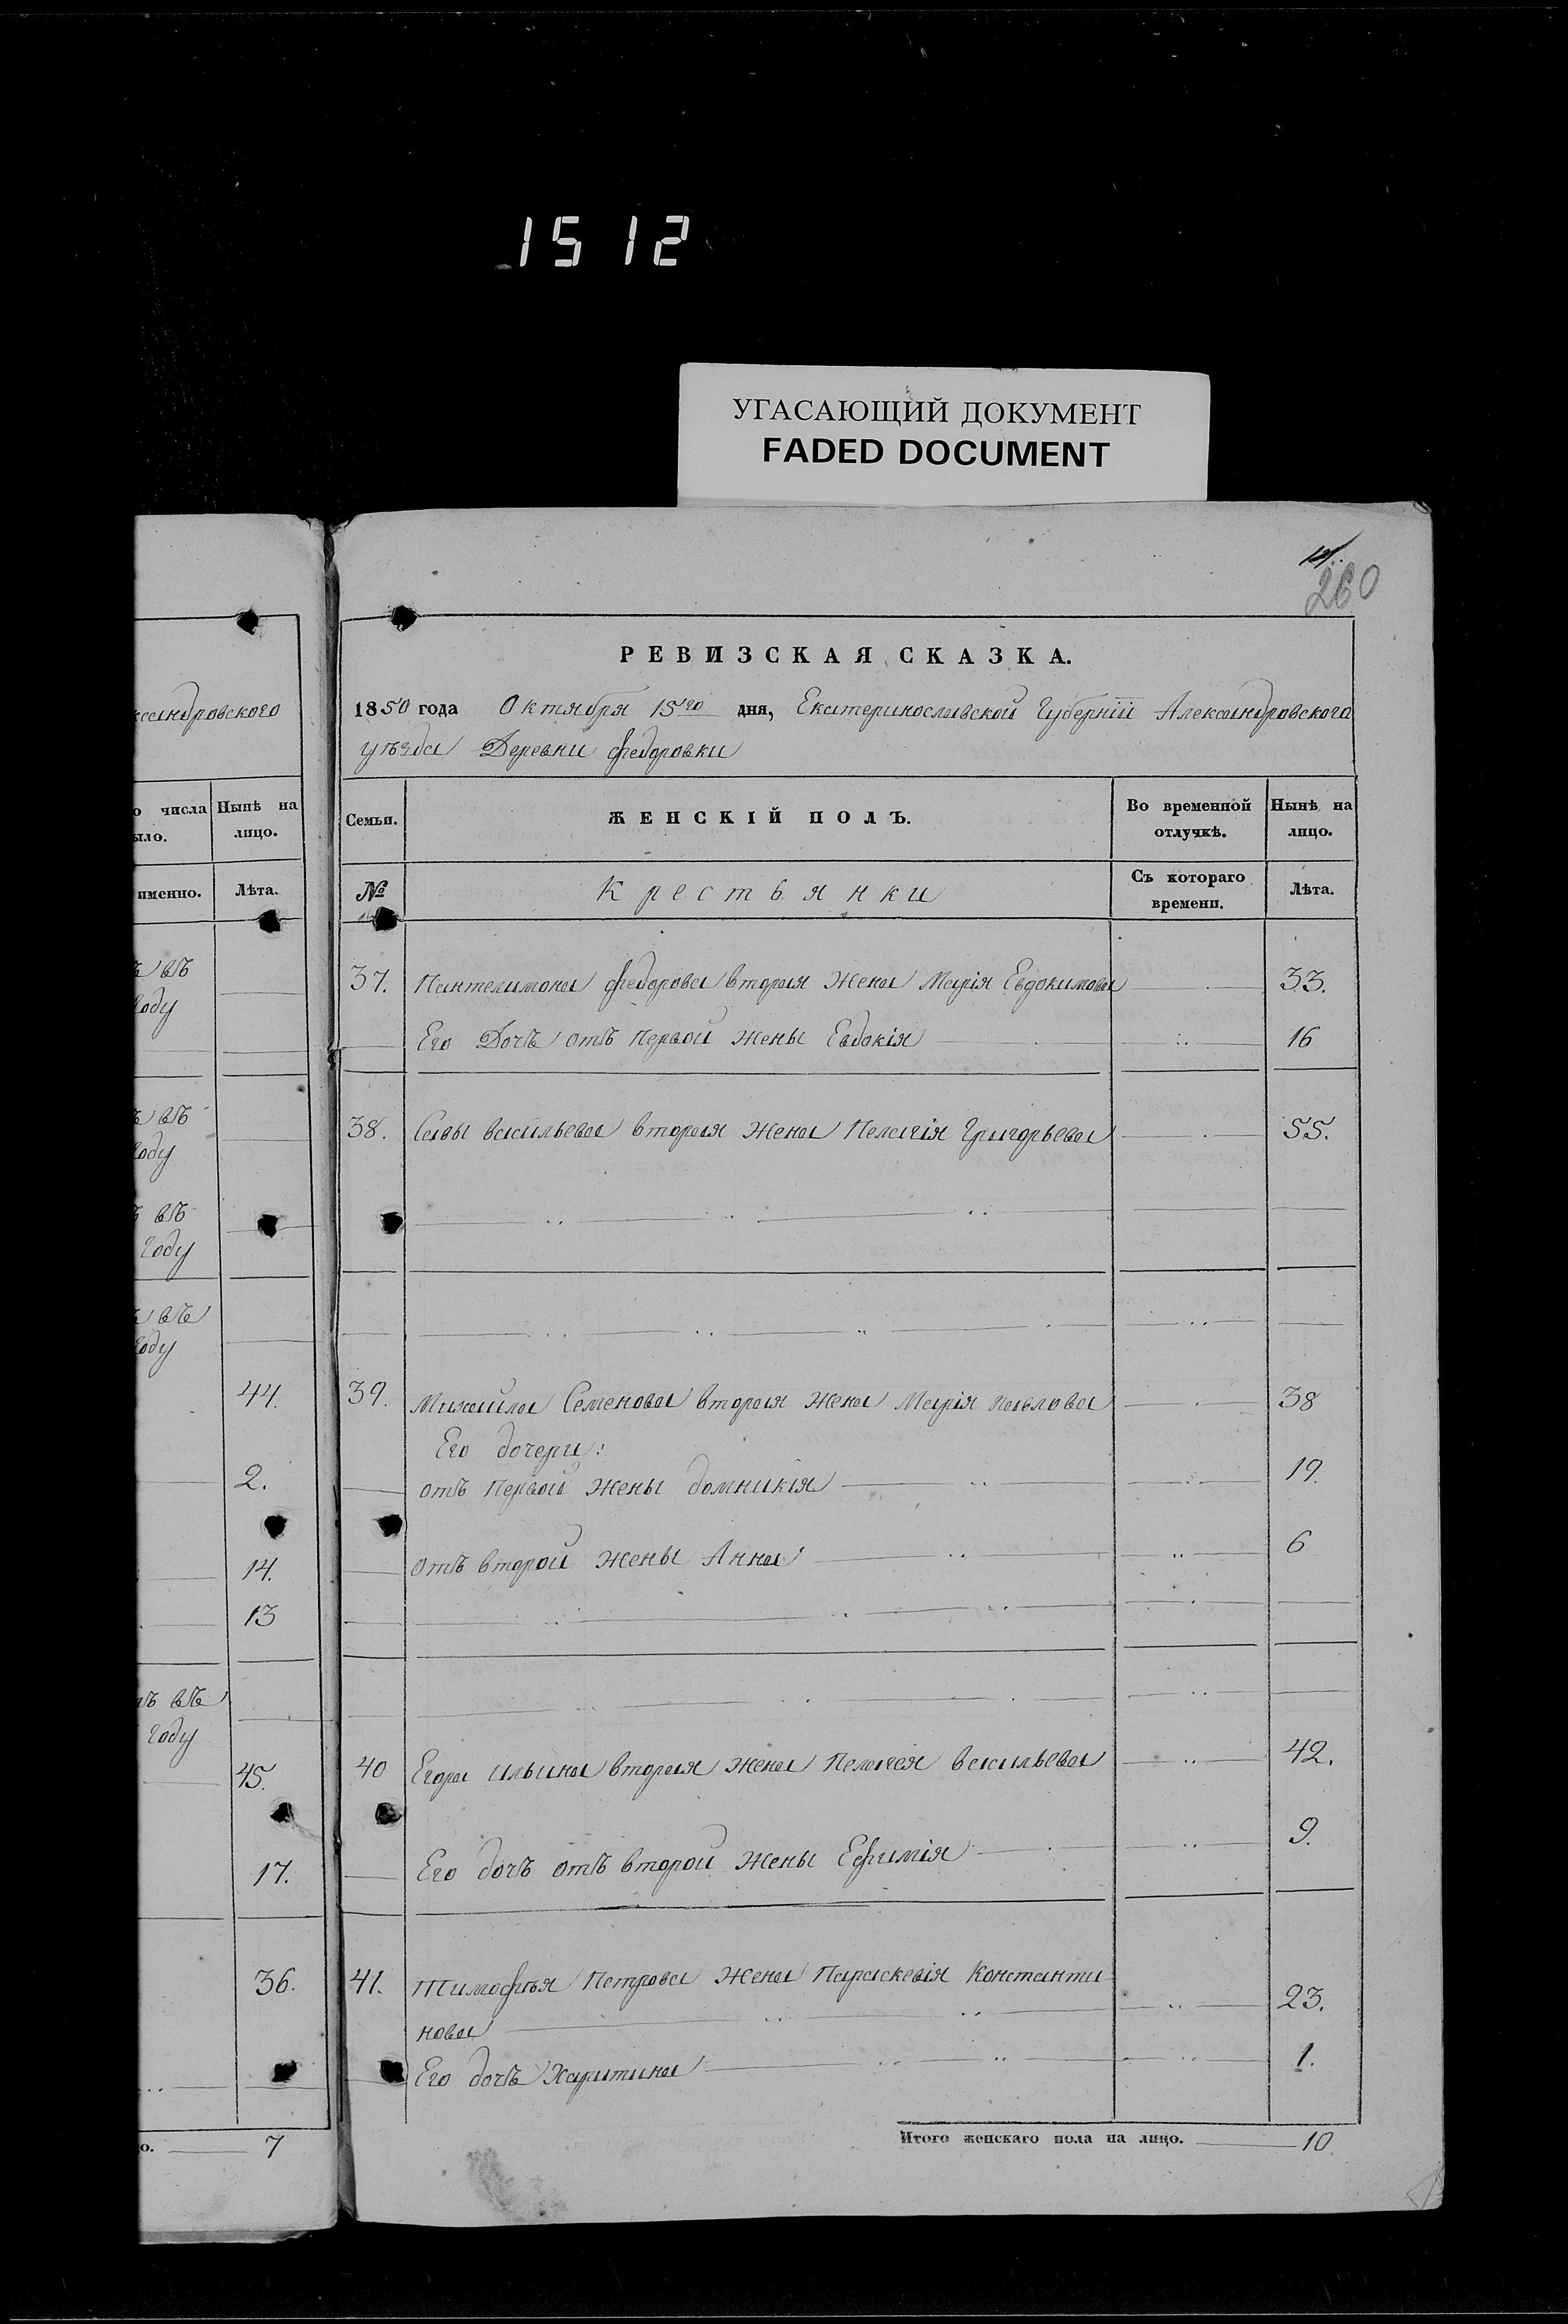 1512
УГАСАЮЩИЙ ДОКУМЕНТ
FADED DOCUMENT
260
ксандровского
о числа
ыло.
Нынѣ на
лицо.
именно.
Лѣта.
въ
году
въ
году
въ
году
въ
году
44.
2.
14.
13
въ
году
45.
17.
36.
о. 7
РЕВИЗСКАЯ СКАЗКА.
1850 года Октября 15го дня, Екатеринославской Губерніи Александровского
уѣзда Деревни Федоровки
Семьи.
ЖЕНСКІЙ ПОЛЪ.
Во временной
отлучкѣ.
Нынѣ на
лицо.
№
Крестьянки
Съ котораго
времени.
Лѣта.
37. Пантелимона Федорова вторая жена Марія Евдокимова 33.
Его Дочь отъ первой жены Евдокія 16
38. Савы Васильева вторая жена Пелагія Григорьева 55.
39. Михайла Семенова вторая жена Марія Павлова 38
Его дочери:
отъ первой жены домникія 19.
отъ второй жены Анна 6
40 Егора Ильина вторая жена Пелагея Васильева 42.
Его дочъ отъ второй жены Ефимія 9.
41. Тимофѣя Петрова жена Параскевія Константи
нова 23.
Его дочь Харитина 1.
Итого женскаго пола на лицо. 10